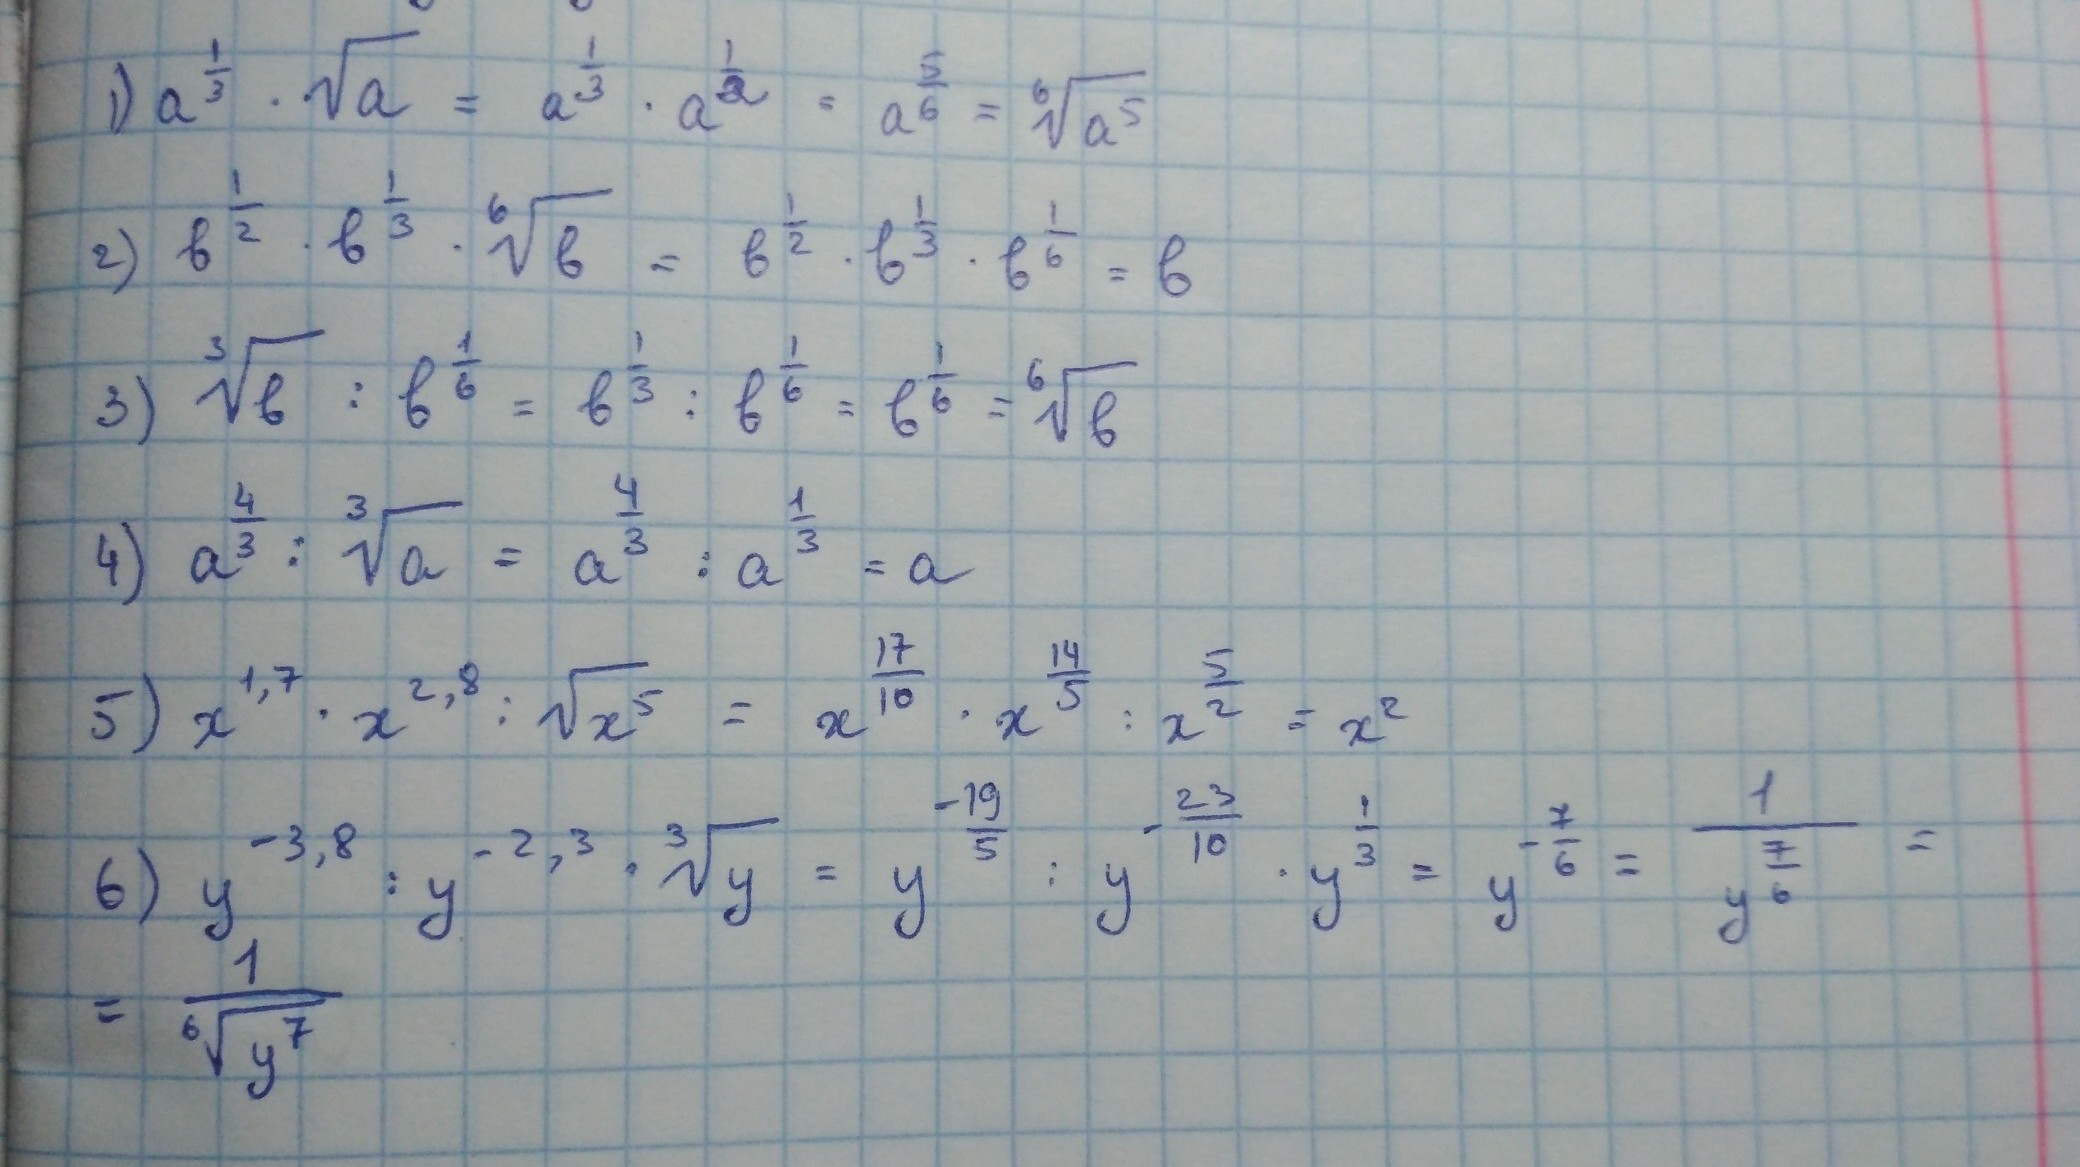 1) a^{1/3} · √a = a^{1/3} · a^{1/2} = a^{5/6} = ⁶√(a⁵)
2) b^{1/2} · b^{1/3} · ⁶√b = b^{1/2} · b^{1/3} · b^{1/6} = b
3) ³√b : b^{1/6} = b^{1/3} : b^{1/6} = b^{1/6} = ⁶√b
4) a^{4/3} : ³√a = a^{4/3} : a^{1/3} = a
5) x^{1,7} · x^{2,8} : √(x⁵) = x^{17/10} · x^{14/5} : x^{5/2} = x²
6) y^{-3,8} : y^{-2,3} · ³√y = y^{-19/5} : y^{-23/10} · y^{1/3} = y^{-7/6} = 1/y^{7/6} =
= 1/⁶√(y⁷)